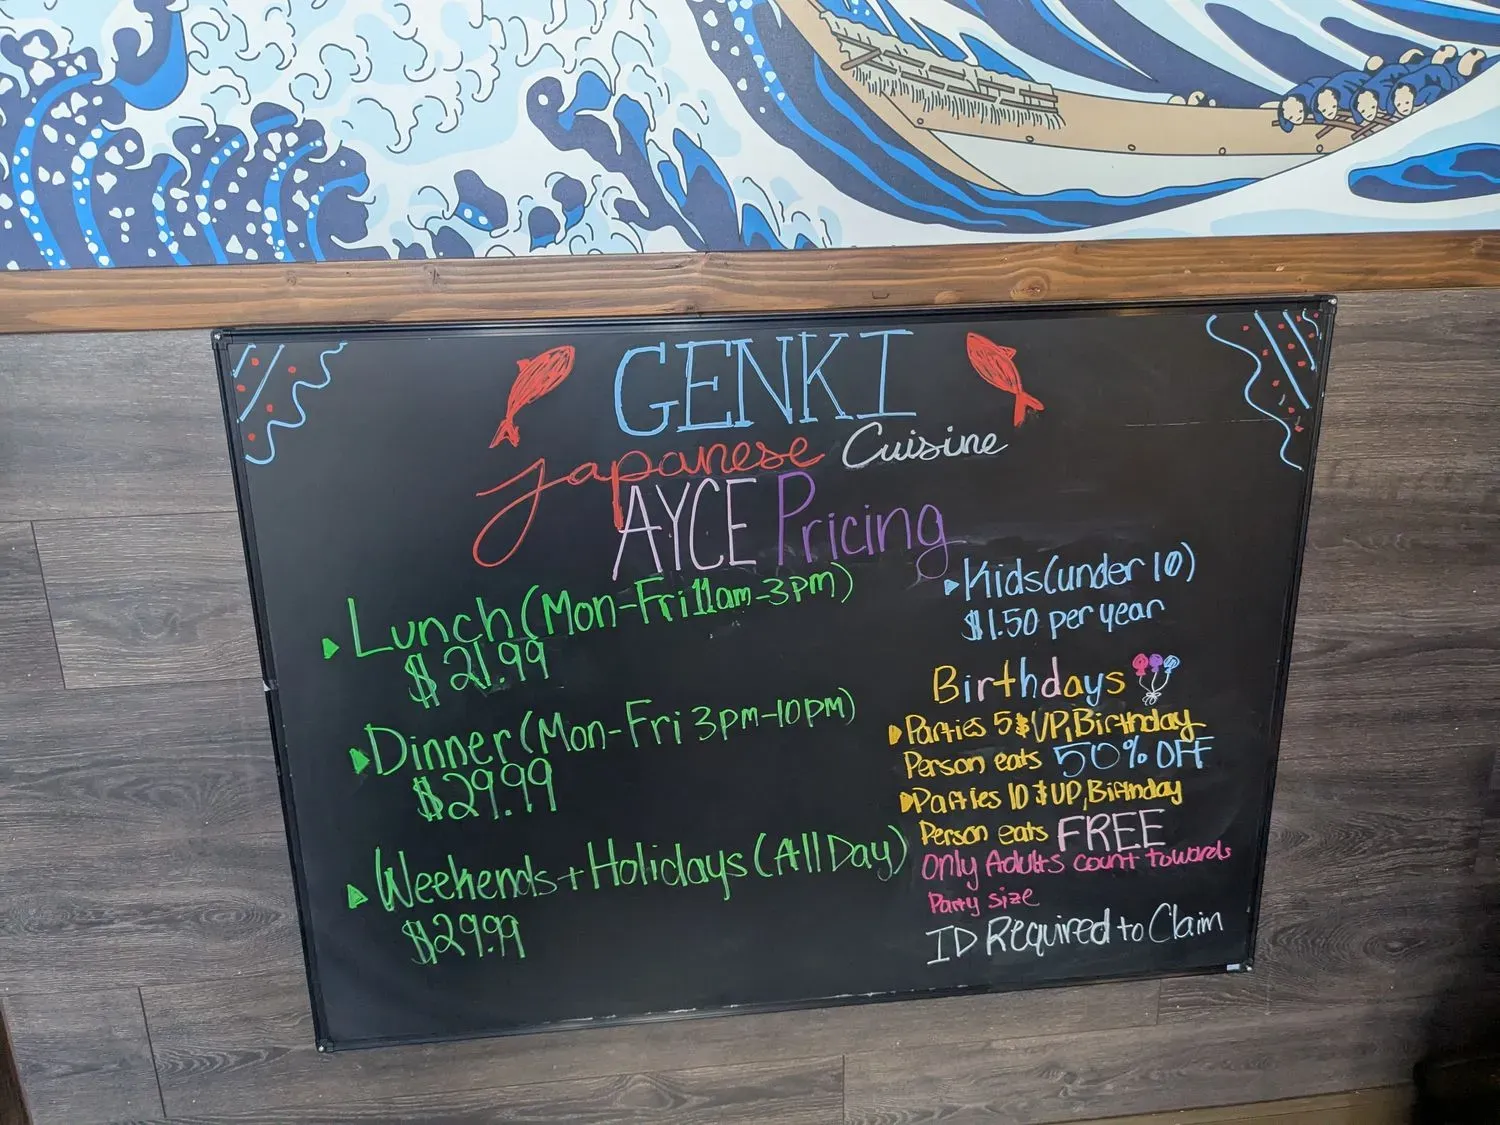 GENKI
Japanese Cuisine
AYCE Pricing
Lunch (Mon-Fri 11am-3pm)
$21.99
Dinner (Mon-Fri 3pm-10pm)
$29.99
Weekends + Holidays (All Day)
$29.99
Kids (under 10)
$1.50 per year
Birthdays
Parties 5 & UP, Birthday
Person eats 50% OFF
Parties 10 & UP, Birthday
Person eats FREE
Only Adults count towards
Party size
ID Required to Claim